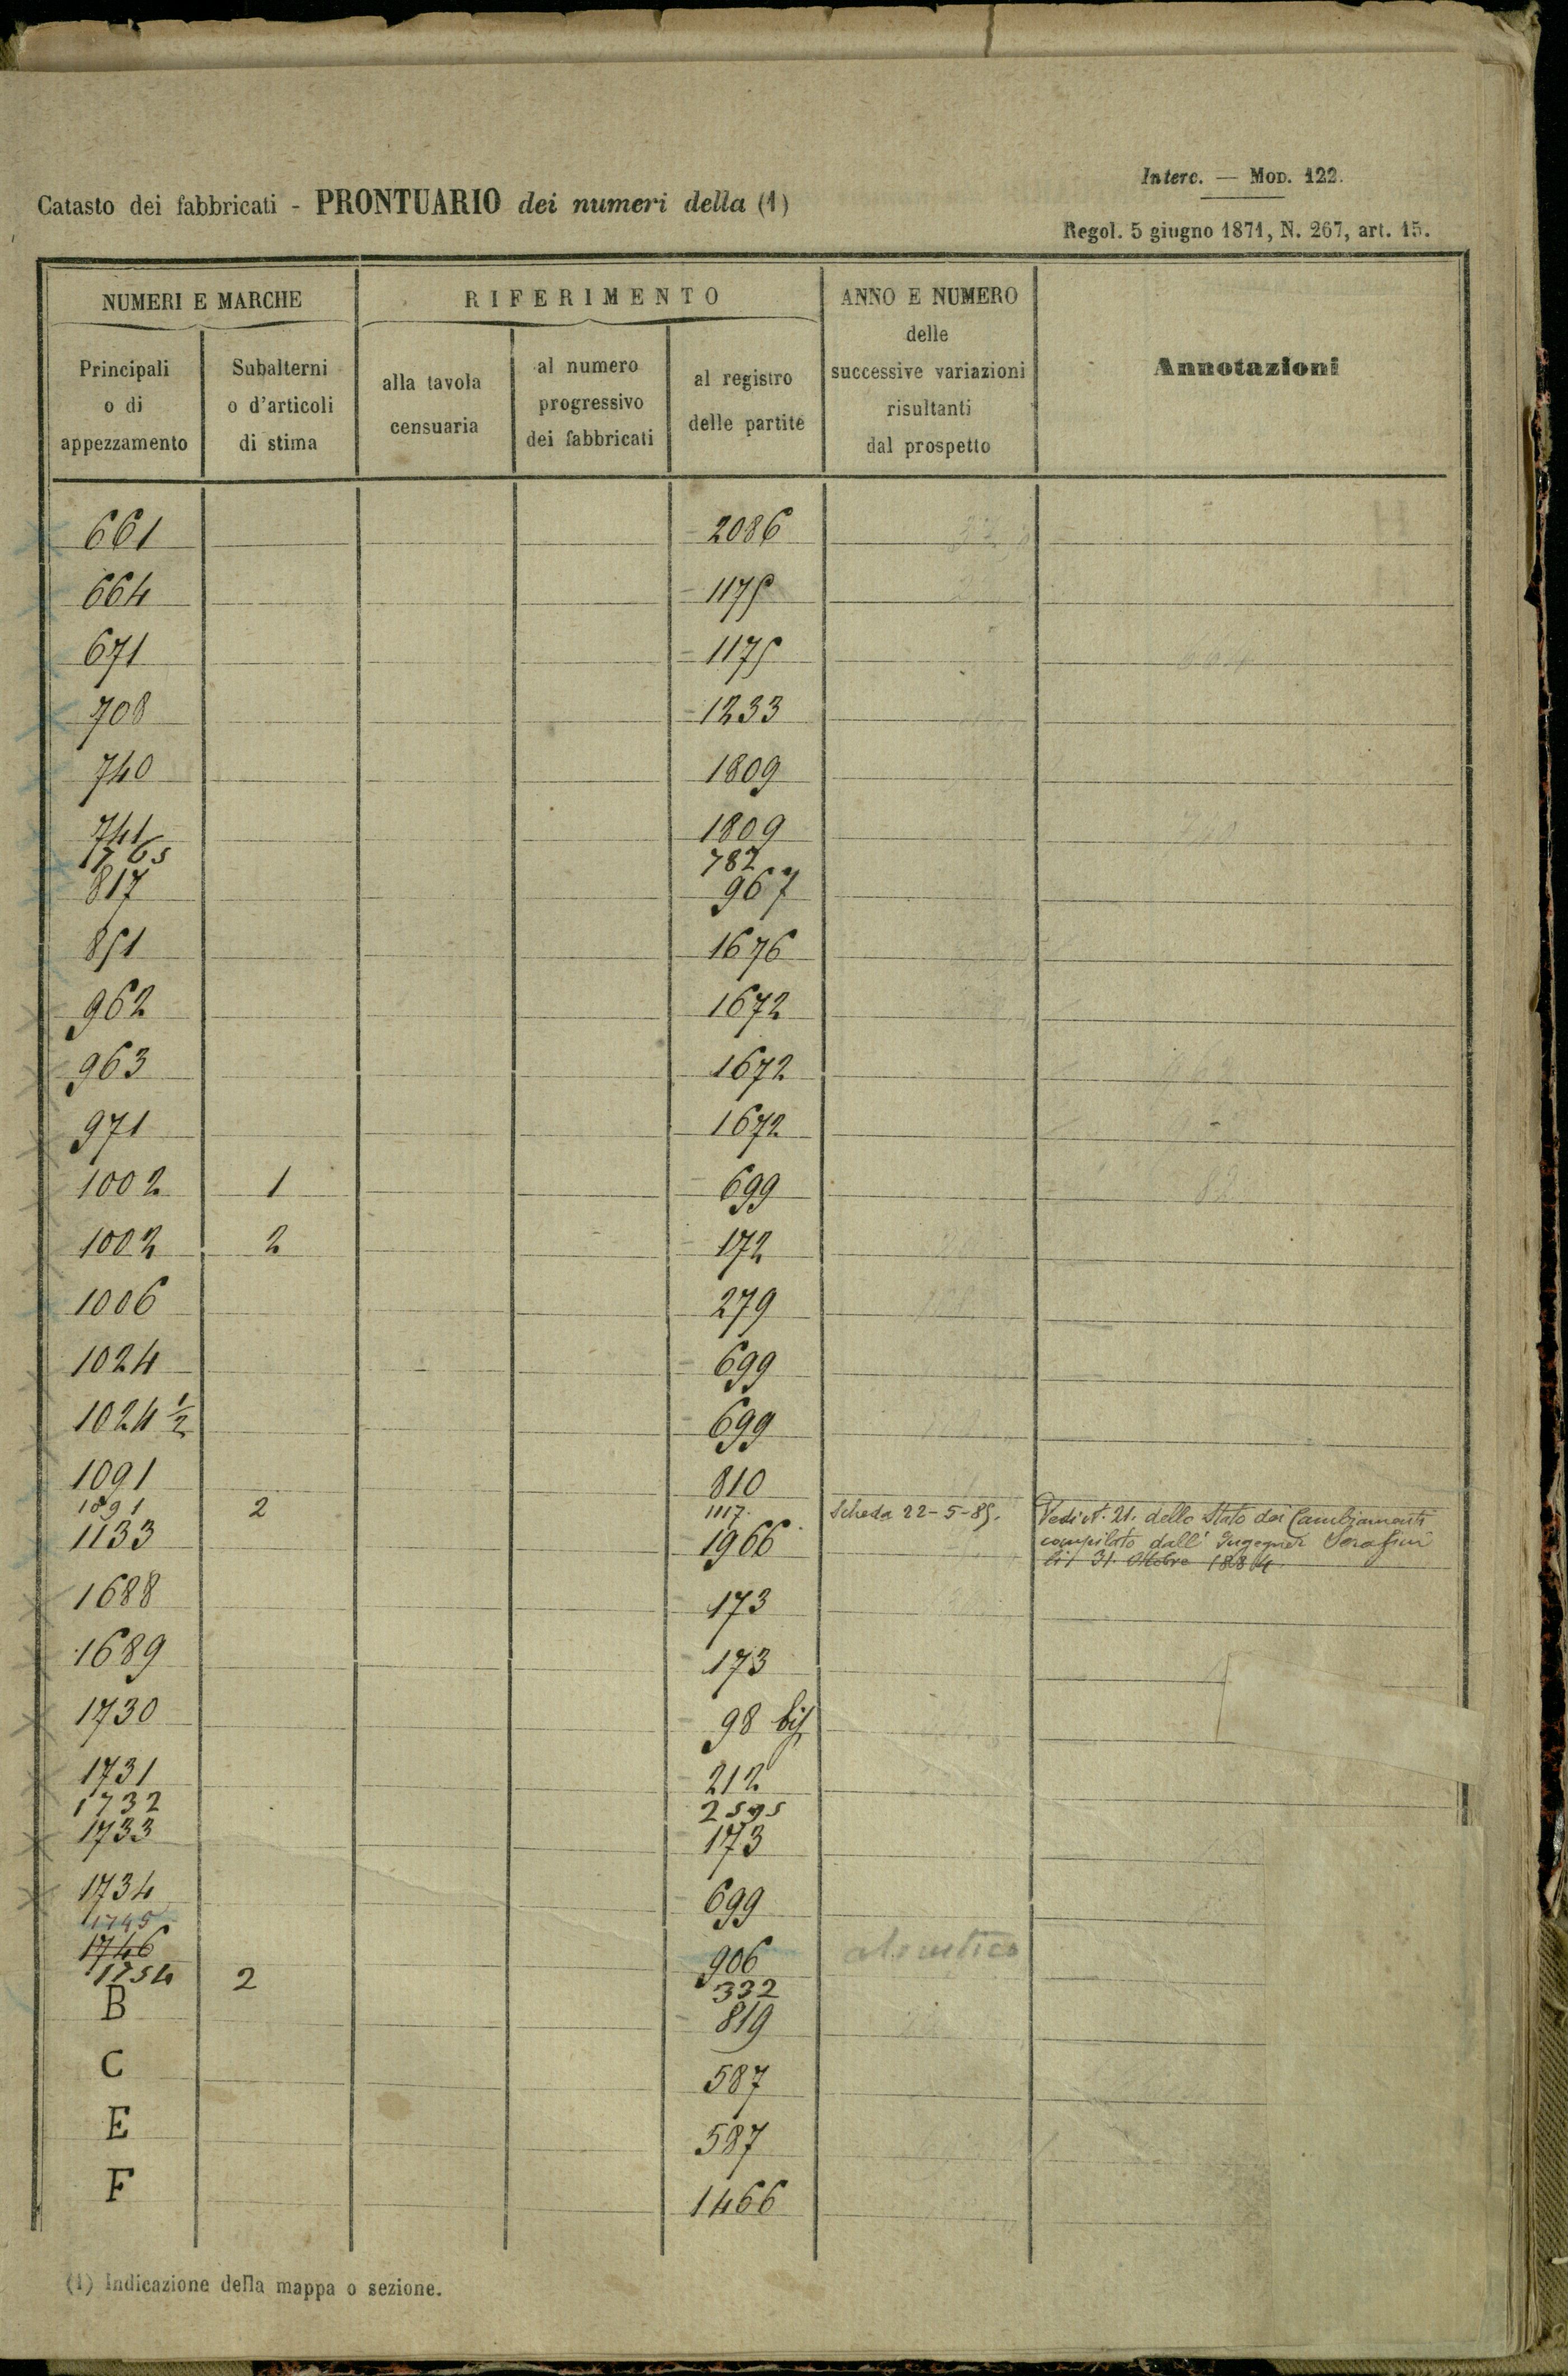 Interc. — Mod. 122.
Catasto dei fabbricati - PRONTUARIO dei numeri della (1)
Regol. 5 giugno 1871, N. 267, art. 15.
NUMERI E MARCHE
RIFERIMENTO
ANNO E NUMERO
delle
successive variazioni
risultanti
dal prospetto
Annotazioni
Principali
o di
appezzamento
Subalterni
o d'articoli
di stima
alla tavola
censuaria
al numero
progressivo
dei fabbricati
al registro
delle partite
661 2086
664 1175
671 1175
708 1233
740 1809
741 1809
1765 782
817 967
851 1676
962 1672
963 1672
971 1672
1002 1 699
1002 2 172
1006 279
1024 699
1024 1/2 699
1091 810
1091 2 1117. Scheda 22-5-85. Vedi N. 21. dello Stato dei Cambiamenti
1133 1966 compilato dall' Ingegner Serafini
li 31 Ottobre 1884
1688 173
1689 173
1730 98 bis
1731 212
1732 2595
1733 173
1734 699
1745
1746 906
1754 2 332
B 819
C 587
E 587
F 1466
(1) Indicazione della mappa o sezione.